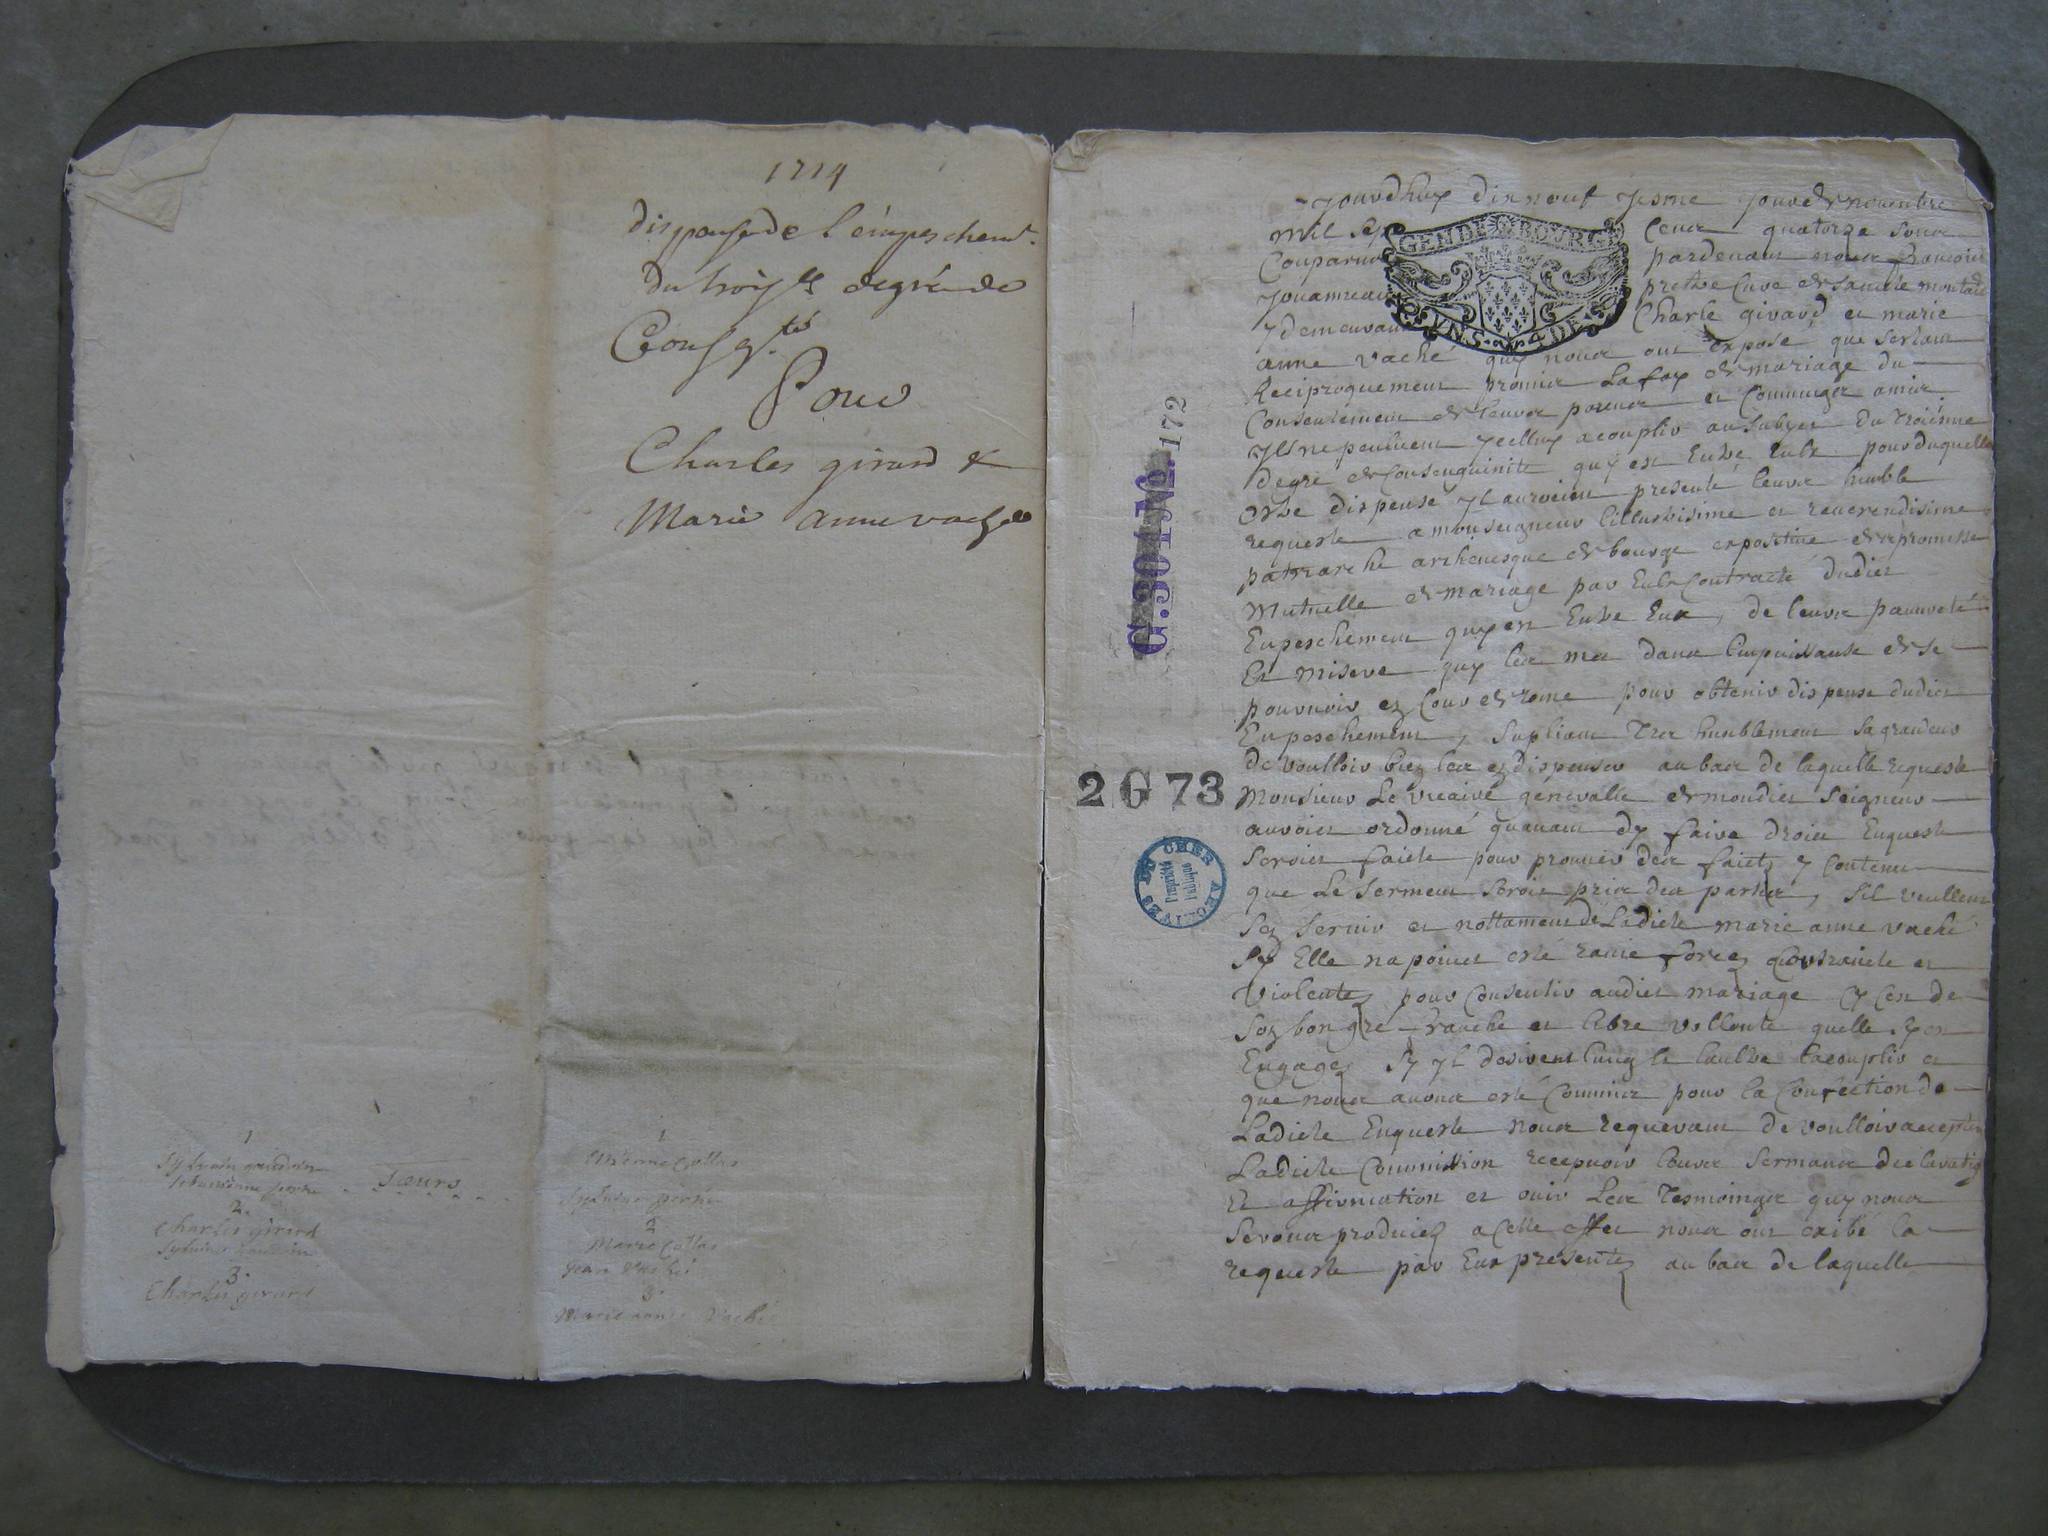 1714
dispense de l'empeschemt.
du troisme degré de
Consg.té
Pour
Charles girard &
Marie anne vaché
1
Sylvain
soeurs
2.
Charles girard
3.
Charles girard
1
Estienne Collas
2
Marie Collas
Jean Vaché
3.
Marie anne Vaché
Jourdhuy dixneuf yesme jour de novembre
mil sept cens quatorze sont
Comparus pardevant nous françois
prestre Cure de
y demeurant Charle girard et marie
anne vaché quy nous ont exposé que sestant
Reciproquement promis La foy de mariage du
Consentement de leurs parens et Communs amis
Ils ne peuluent y celluy acouplir au subjet du troisième
degré de Consenguinite quy est Entre Eulx pour duquelle
estre dispensé yl auroient presenté leurs humble
requeste a monseigneur lillustrisime et reverendisime
patriarche archevesque de bourge expositive de repromesse
Mutuelle de mariage par Eulx Contracté dudict
Enpeschement quy est Entre Eux, de leurs pauvreté
Et misere quy les met dans l'inpuissance de se
pourvoir en Cour de rome pour obtenir dispense dudict
Enpeschement, supliant Tres humblement sa grandeur
de voulloir bien les en dispenser au bas de laquelle requeste
Monsieur Le vicaire generalle de mondict seigneur
auroit ordonné quavant dy faire droict Enqueste
seroict faicte pour prouver des faicts y contenu
que Le serment seroit pris des parties, sil veullent
sen servir et nottament de Ladicte marie anne vaché
sy Elle na point esté ravie force contraincte et
Violentez pour Consentir audict mariage sy cest de
son bon gré franche et libre vollonte quelle sy est
Engagez sy yl desirent lung et laultre lacouplir et
que nous avons esté Commis pour la Confection de
Ladicte Enqueste nous requerant de voulloir accepter
Ladicte Commission recepvoir leurs serments declaration
Et affirmation et ouir Les Tesmoinges quy nous
seront produict a cette effet nous ont exibé la
requeste par Eux presentez au bas de laquelle
GEN. DE BOVRGES
VN. S. 4 DE
C. 304 No. 172
2 G 73
ARCHIVES DU CHER
Propriété Publique